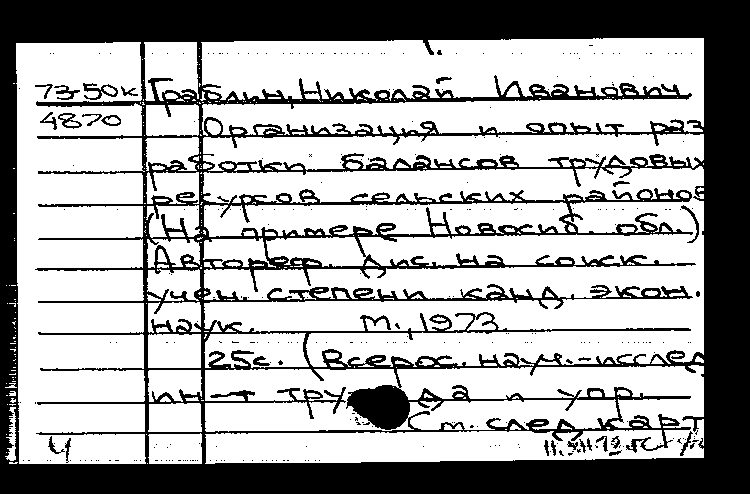 1.
73-50к Граблин, Николай Иванович
4870 Организация и опыт раз
работки балансов трудовых
ресурсов сельских районов
(На примере Новосиб. обл.).
Автореф. дис. на соиск.
учен. степени канд. экон.
наук. М., 1973.
25с. (Всерос. науч.-исслед
ин-т труда и упр.
(См. след. карт
Ч